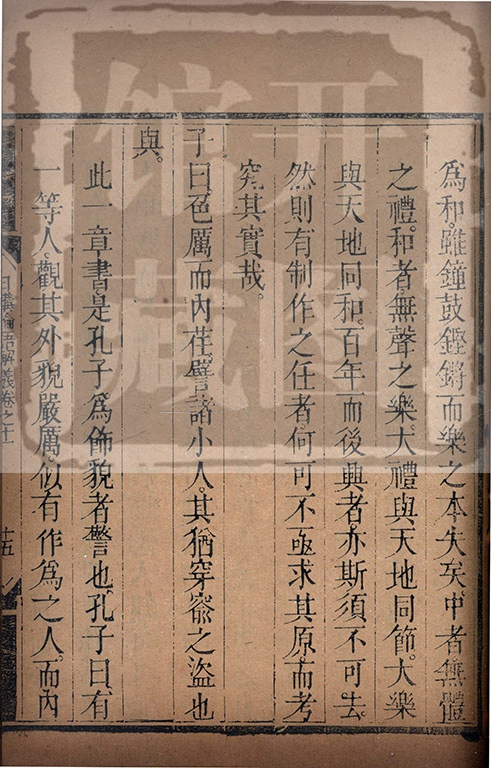 為和雖鐘鼓鏗鏘而樂之本失矣中者無體
之禮和者無聲之樂大禮與天地同節大樂
與天地同和百年而後興者亦斯須不可去
然則有制作之任者何可不亟求其原而考
究其實哉
子曰色厲而內荏譬諸小人其猶穿窬之盜也
與
此一章書是孔子為飾貌者警也孔子曰有
一等人觀其外貌嚴厲似有作為之人而內
日講四書解義卷之十一
十五